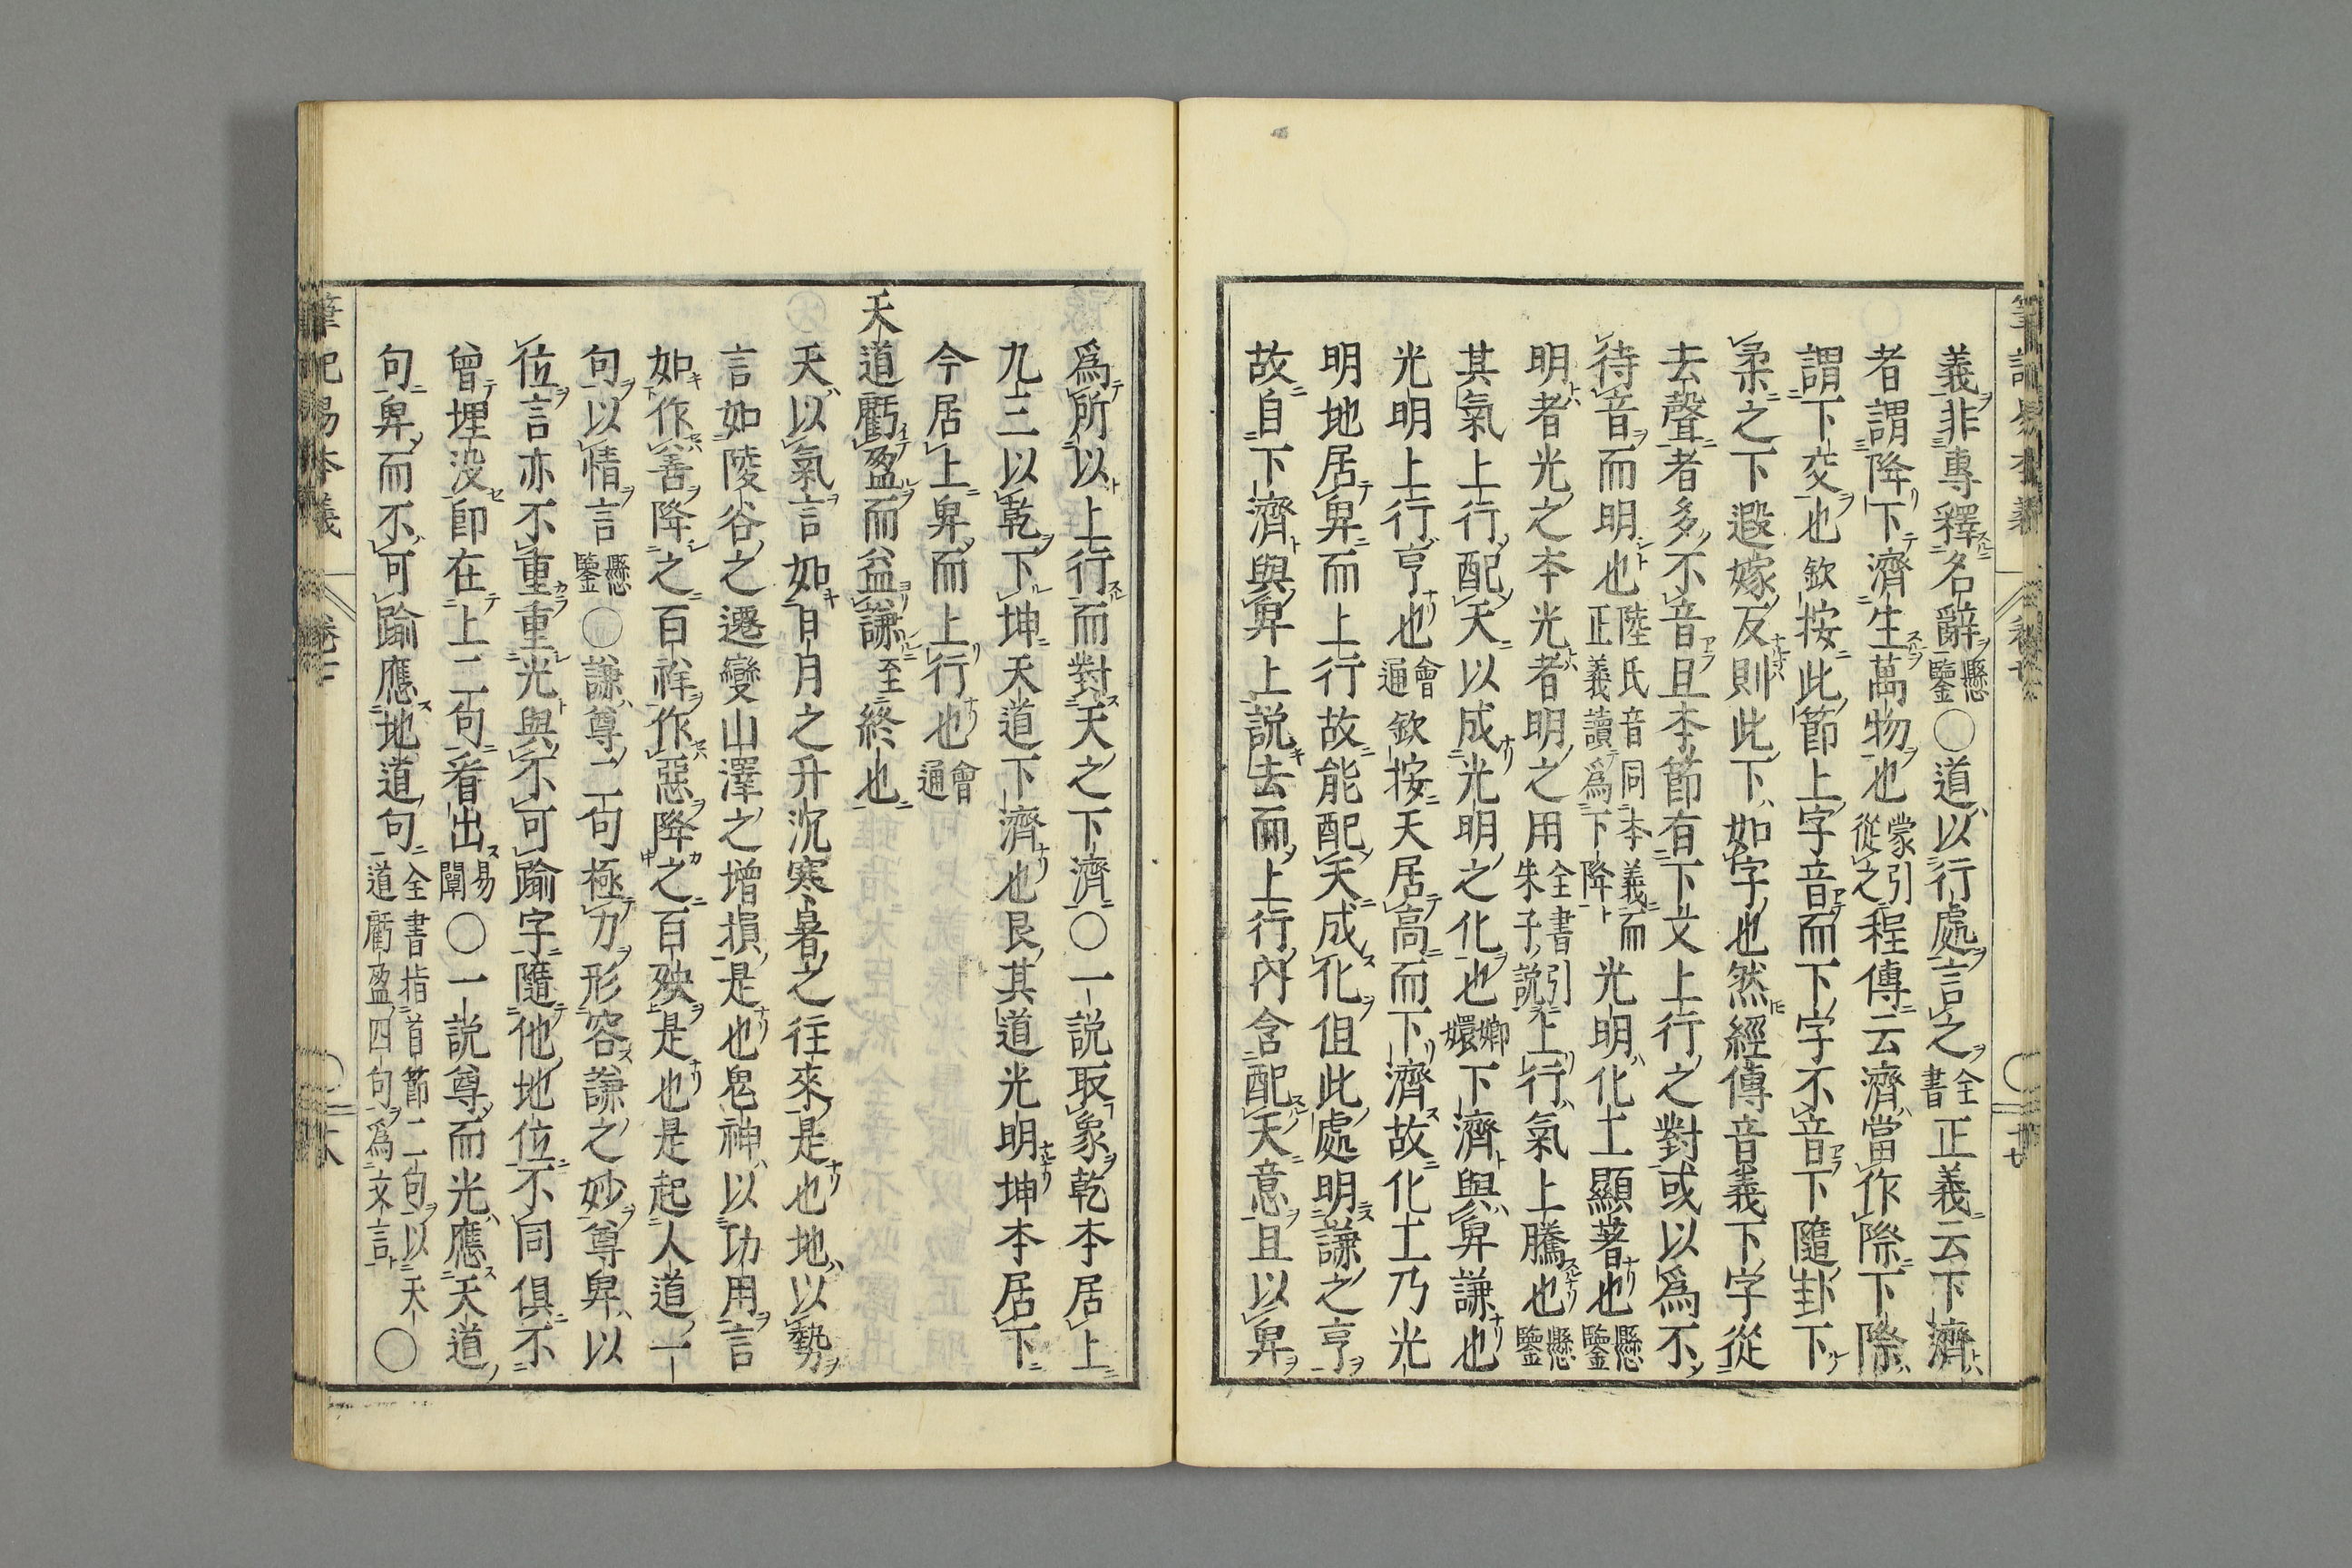 義非專釋名辭懸鑒○道以行處言之全書正義云下濟
者謂降下濟生萬物也蒙引從之程傳云濟當作際下際
謂下交也欽按此節上字音而下字不音下隨卦下
柔之下遐嫁反則此下如字也然經傳音義下字從
去聲者多不音且本節有下文上行之對或以爲不
待音而明也陸氏音同本義而正義讀爲下降光明化工顯著也懸鑒
明者光之本光者明之用全書引朱子說上行氣上騰也懸鑒
其氣上行配天以成光明之化也嫏嬛下濟與卑謙也
光明上行亨也會通欽按天居高而下濟故化工乃光
明地居卑而上行故能配天成化但此處明謙之亨
故自下濟與卑上說去而上行內含配天意且以卑
爲所以上行而對天之下濟○一說取象乾本居上
九三以乾下坤天道下濟也艮其道光明坤本居下
今居上卑而上行也會通
天道虧盈而益謙至終也
天以氣言如日月之升沉寒暑之往來是也地以勢
言如陵谷之遷變山澤之增損是也鬼神以功用言
如作善降之百祥作惡降之百殃是也是起人道一
句以情言懸鑒○謙尊二句極力形容謙之妙尊卑以
位言亦不重重光與不可踰字隨他地位不同俱不
曾埋没卽在上二句看出易闡○一說尊而光應天道
句卑而不可踰應地道句全書指首節二句以天道虧盈四句爲文言○
筆記易本義